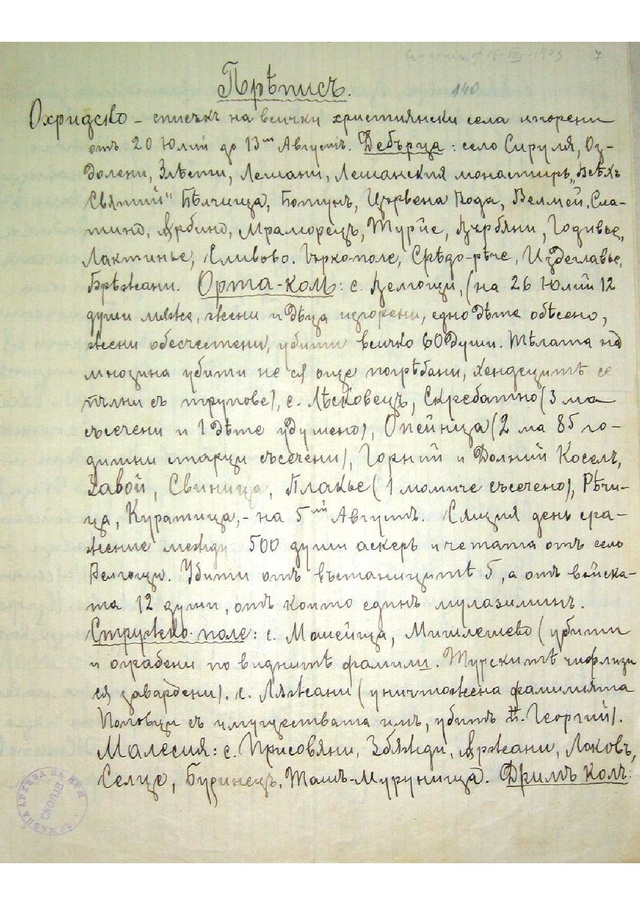 7
140
Прѣписъ.
Охридско – списъкъ на всички християнски села изгорени
отъ 20 Юлий до 13ий Августъ. Дебърца: село Сируля, Оз-
долени, Злѣсти, Лешани, Лешанския монастиръ „Всѣхъ
Святий" Бѣлчища, Ботунъ, Църvена Вода, Велмей, Сла-
тино, Арбино, Мраморецъ, Турйе, Върбяни, Годивье,
Лактинье, Сливово. Гърко-поле, Срѣдо-рѣче, Издеглавье,
Брѣжани. Орта-колъ: с. Велгощи, (на 26 Юлий 12
души мѫже, жени и дѣца изгорени, едно дѣте обѣсено,
жени обесчестени, убити всичко 60 души. Тѣлата на
мнозина убити не ся още погрѣбани, хендецитѣ се
пълни съ трупове), с. Лѣсковецъ, Скребатно (3 ма
съсечени и 1 дѣте удушено), Опейница (2 ма 85 го-
дишни старци съсечени), Горний и Долний Коселъ,
Завой, Свинища, Плакье (1 момиче съсечено), Рѣчи-
ца, Куратица, – на 5ий Августъ. Сящия день сра-
жение между 500 души аскеръ и четата отъ село
Велгощи. Убити отъ въстаницитѣ 5, а отъ войска-
та 12 души, отъ които единъ мулазиминъ.
Стружско поле: с. Мошейца, Мишлешево (убити
и ограбени по виднитѣ фамили. Турскитѣ чифлици
ся завардени). с. Лѫжани (уничтожена фамилията
Поповци съ имуществата имъ, убитъ п. Георгий).
Малесия: с. Присовяни, Збѫжди, Аржани, Локовъ,
Селце, Буринецъ, Ташъ-Муруница. Дримъ колъ:
СКОПИЕ